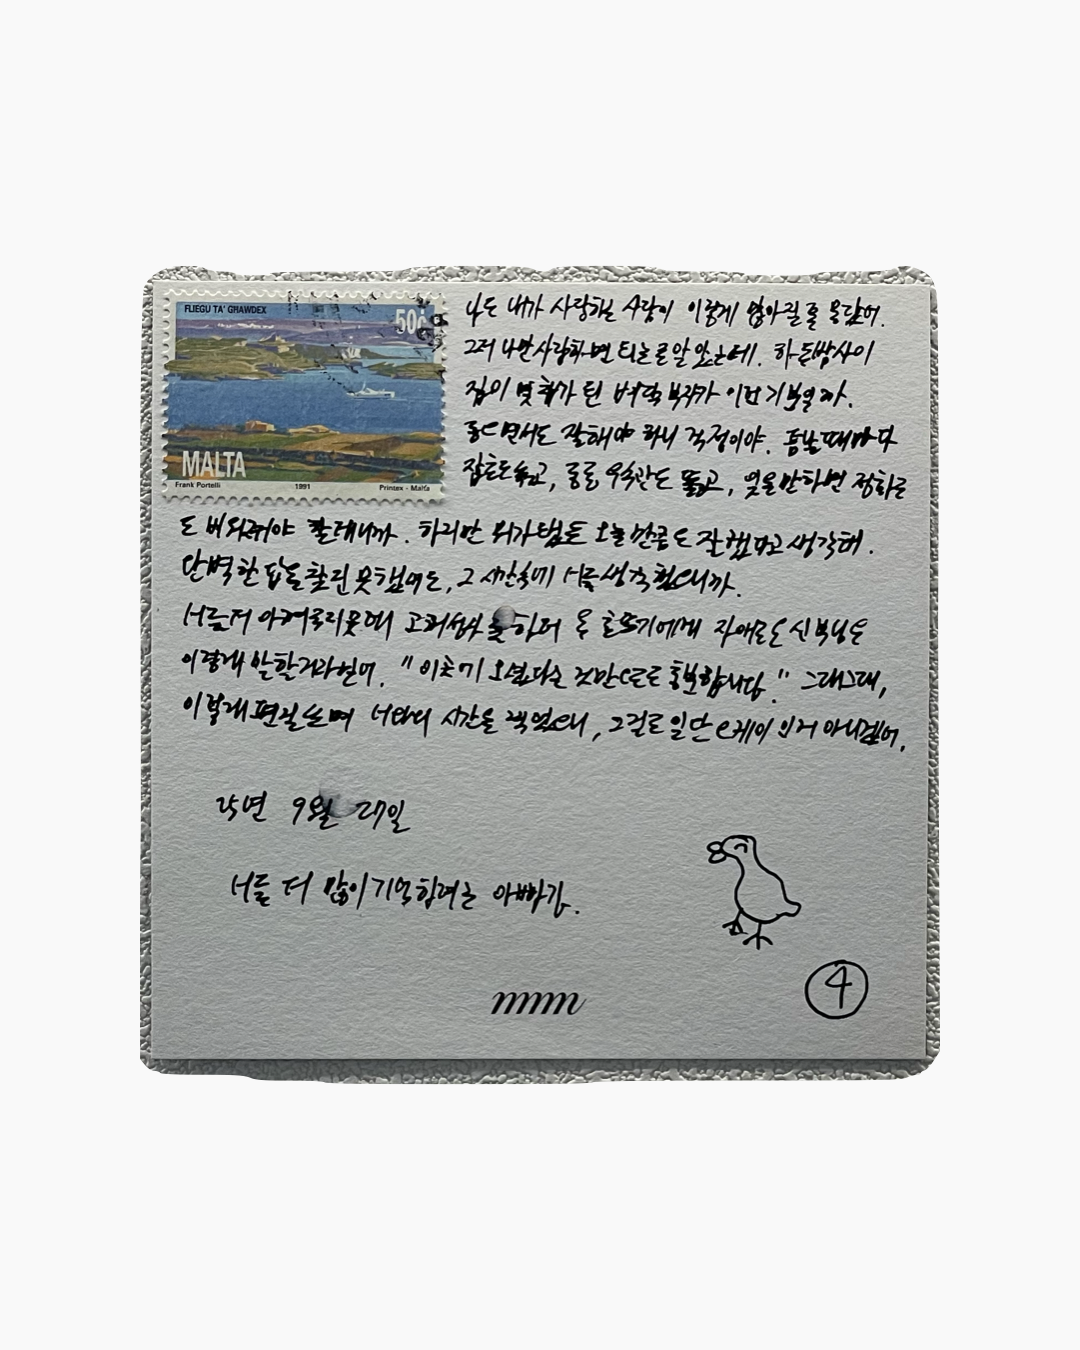 FLIEGU TA' GHAWDEX
50c
MALTA
Frank Portelli 1991 Printex - Malta
나도 내가 사랑하는 사람이 이렇게 많아질 줄 몰랐어.
그저 나만 사랑하면 되는 줄 알았는데. 하룻밤 사이
집이 몇 채가 된 벼락부자가 이런 기분일까.
좋으면서도 잘해야 하니 걱정이야. 틈날 때마다
잡초도 뽑고, 종종 우수관도 뚫고, 잊을만하면 정화조
도 비워줘야 할테니까. 하지만 뭐가됐든 오늘만큼은 잘했다고 생각해.
완벽한 답을 찾진 못했어도, 그 시간동안 너를 생각했으니까.
너를 더 아껴주지못해 고해성사를 하러 온 초보기에게 자애로운 신부님은
이렇게 말할거라 한어. "이곳에 오셨다는 것만으로도 충분합니다." 그래그래,
이렇게 편질 쓰며 너와의 시간을 액었으니, 그걸로 일단 오케이 인거 아니겠어.
25년 9월 27일
너를 더 많이 기억하려는 아빠가.
4
mmm